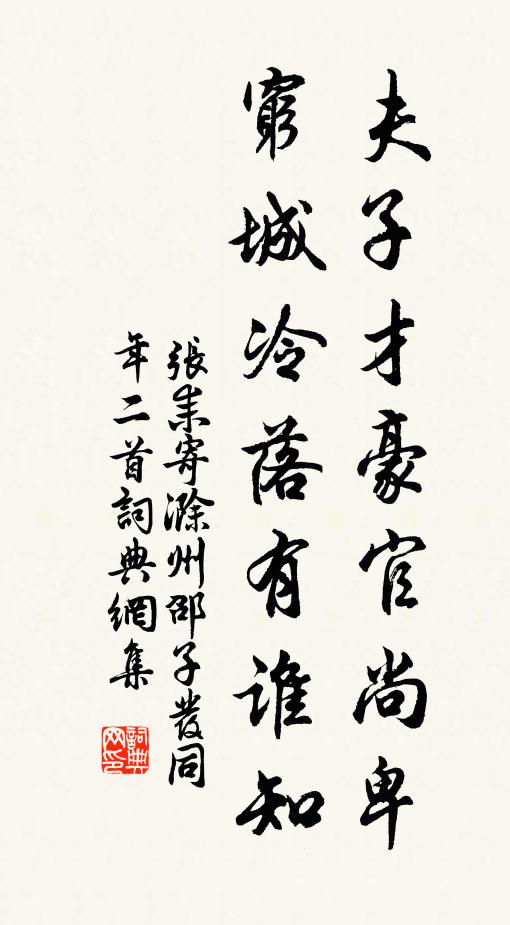 夫子才豪官尚卑
窮城冷落有誰知
張耒寄滁州邵子發同
年二首詞典網集
詞典網印